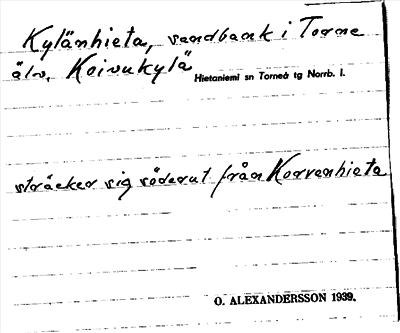 Kylänhieta, sandbank i Torne
älv, Koivukylä Hietaniemi sn Torneå tg Norrb. l.
sträcker sig söderut från Korvenhieta
O. ALEXANDERSSON 1939.